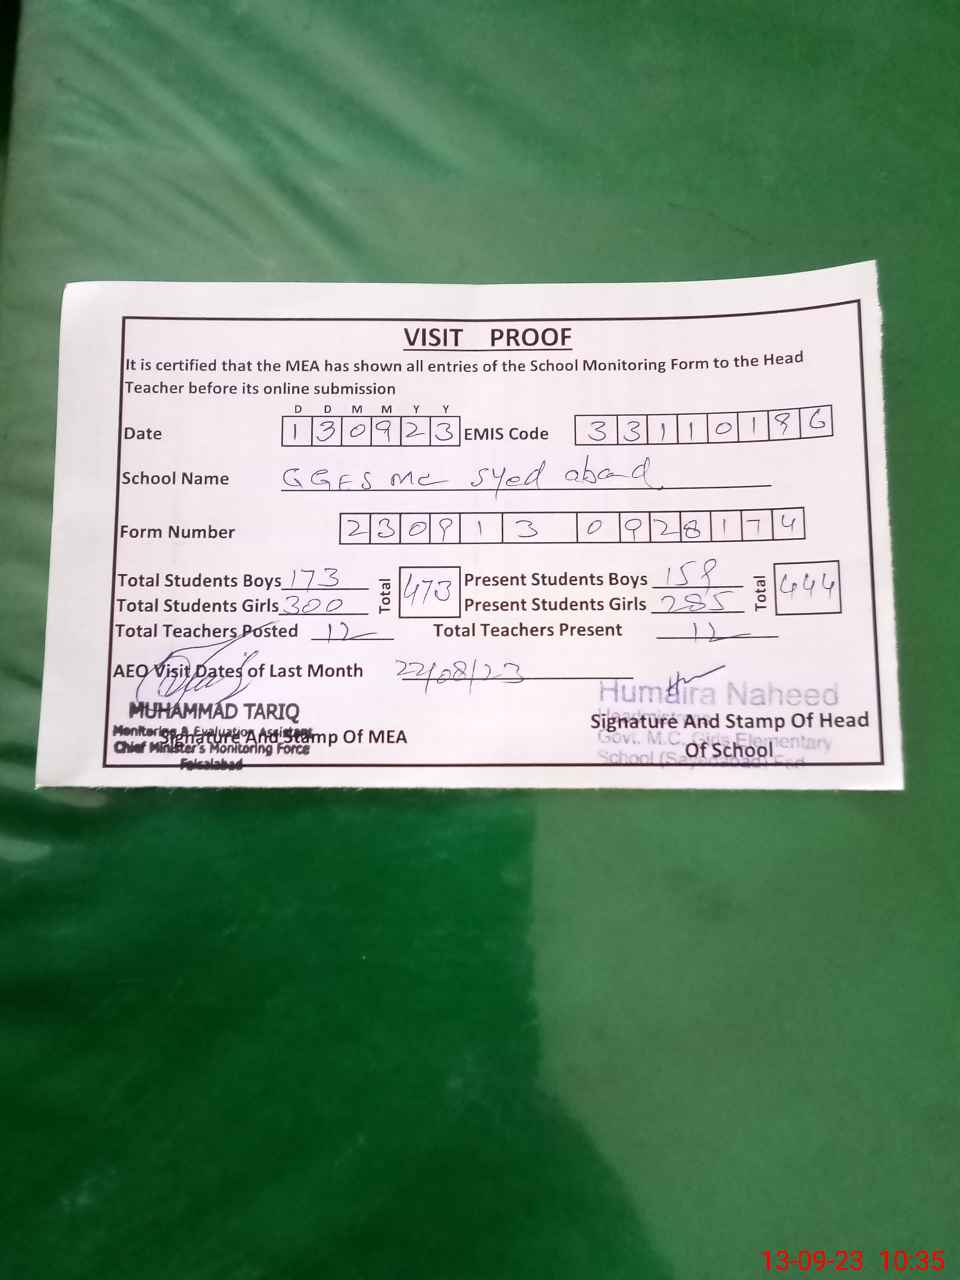 VISIT PROOF
It is certified that the MEA has shown all entries of the School Monitoring Form to the Head
Teacher before its online submission
D D M M Y Y
Date 1 3 0 9 2 3 EMIS Code 3 3 1 1 0 1 8 6
School Name GGES MC Syed abad
Form Number 2 3 0 9 1 3 0 9 2 8 1 7 4
Total Students Boys 173 Total 473 Present Students Boys 159 Total 444
Total Students Girls 300 Present Students Girls 285
Total Teachers Posted 12 Total Teachers Present 12
AEO Visit Dates of Last Month 22/08/23
MUHAMMAD TARIQ
Monitoring & Evaluation Assistant
Chief Minister's Monitoring Force
Faisalabad
Signature And Stamp Of MEA
Humaira Naheed
Signature And Stamp Of Head
Of School
Govt. M.C. Girls Elementary
School
13-09-23 10:35